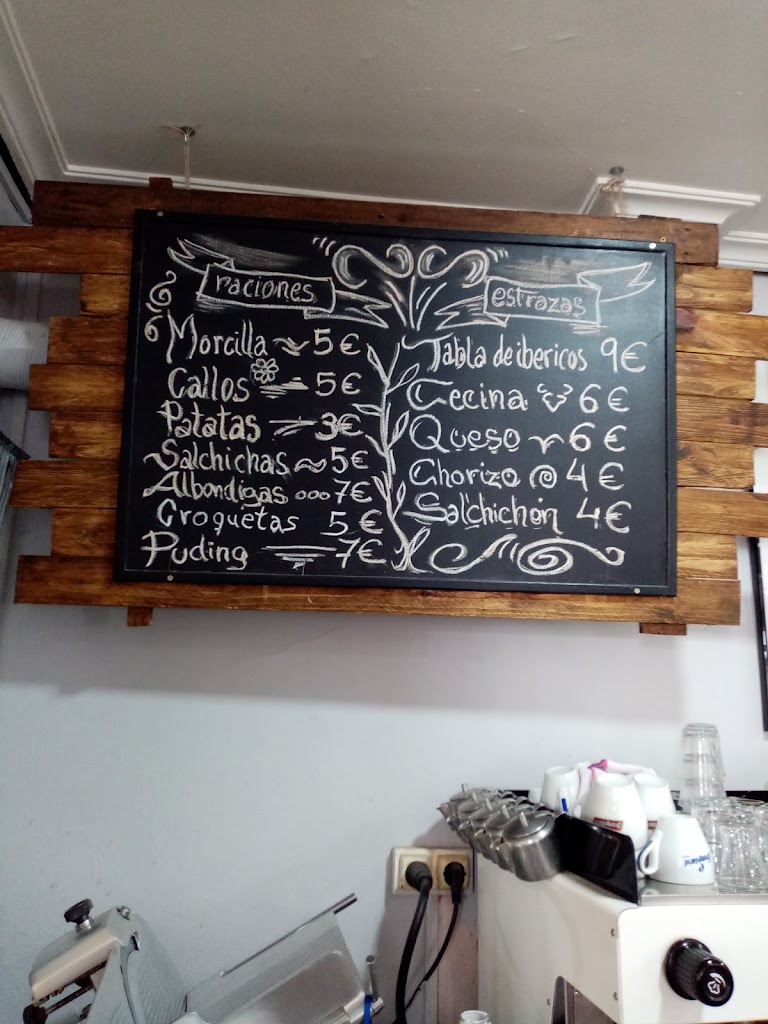 raciones
Morcilla 5€
Callos 5€
Patatas 3€
Salchichas 5€
Albondigas 7€
Croquetas 5€
Puding 7€
estrazas
Tabla de ibericos 9€
Cecina 6€
Queso 6€
Chorizo 4€
Salchichón 4€